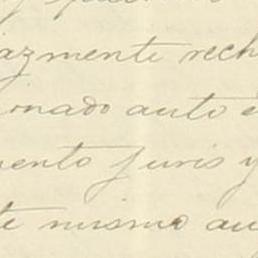 azmente rech
onado auto e
ento juris y
te mismo au